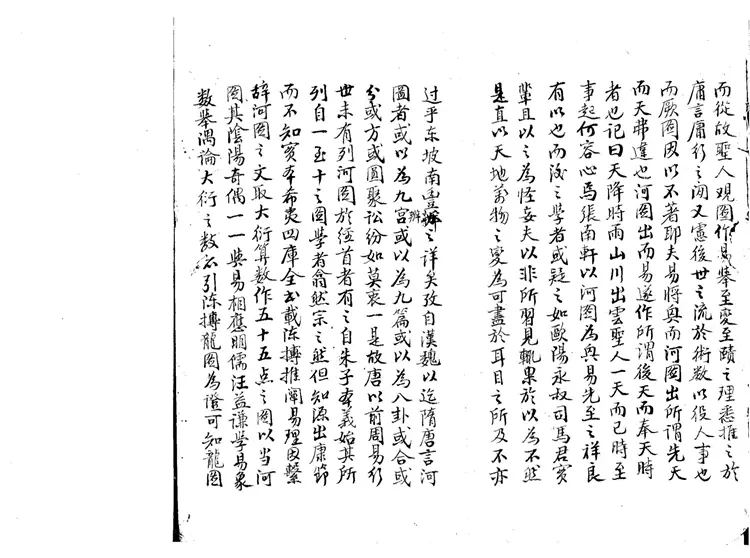 而從故聖人观圖作易舉至變至賾之理悉推之於
庸言庸行之间又憲後世之流於術数以役人事也
而厥圖因以不著耶夫易將興而河圖出所謂先天
而天弗違也河圖出而易遂作所谓後天而奉天時
者也記曰天降時雨山川出雲聖人一天而已時至
事起何容心焉張南軒以河圖為興易先至之祥良
有以也而後之學者或疑之如歐陽永叔司馬君實
輩且以之為怪妄夫以非所習見輒果於以為不然
是直以天地萬物之變為可盡於耳目之所及不亦
过乎东坡南豊辨之详矣攷自漢魏以迄隋唐言河
圖者或以為九宫或以為九篇或以為八卦或合或
分或方或圓聚讼纷如莫衷一是故唐以前周易行
世未有列河圖於經首者有之自朱子本義始其所
列自一至十之圖學者翕然宗之然但知源出康節
而不知實本希夷四庫全书載陈摶推闡易理因繫
辞河圖之文取大衍算数作五十五点之圖以当河
圖其陰陽奇偶一一與易相應明儒汪益謙學易象
数舉隅論大衍之数亦引陈摶龍圖為證可知龍圖